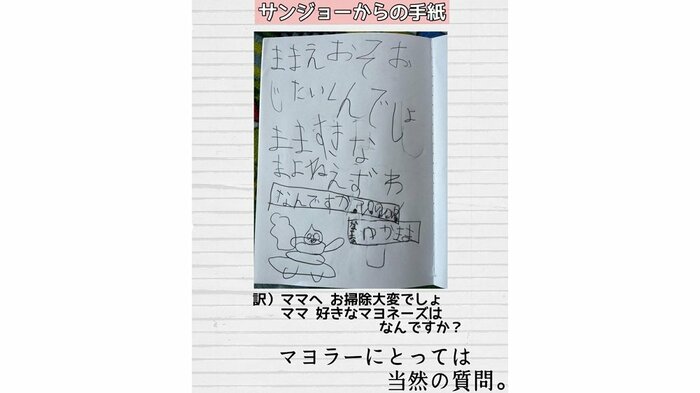 サンジョーからの手紙
ままえおそお
じたいくんでしょ
まますきな
まよねえずわ
なんですか
ゆかまま
訳）ママへ お掃除大変でしょ
ママ 好きなマヨネーズは
なんですか？
マヨラーにとっては
当然の質問。